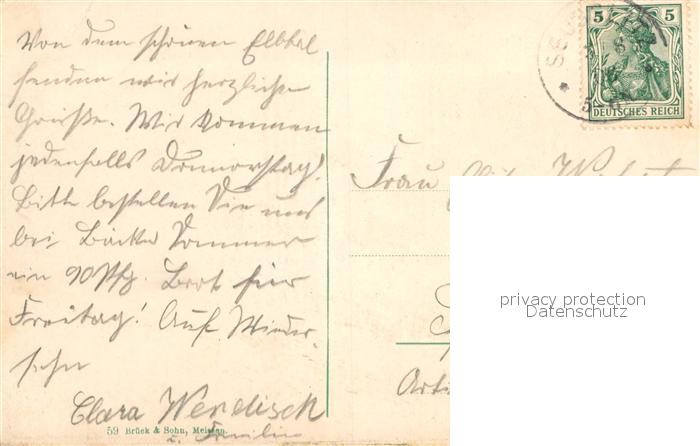 Von dem schönen Elbtal
senden wir herzliche
Grüße. Wir kommen
jedenfalls Donnerstag!
Bitte bestellen Sie uns
bei Bäcker Sommer
ein 90 Pfg. Brot für
Freitag! Auf Wieder-
sehn
Clara Wendisch
u. Familie
59 Brück & Sohn, Meissen.
5 5
DEUTSCHES REICH
Frau
privacy protection
Datenschutz